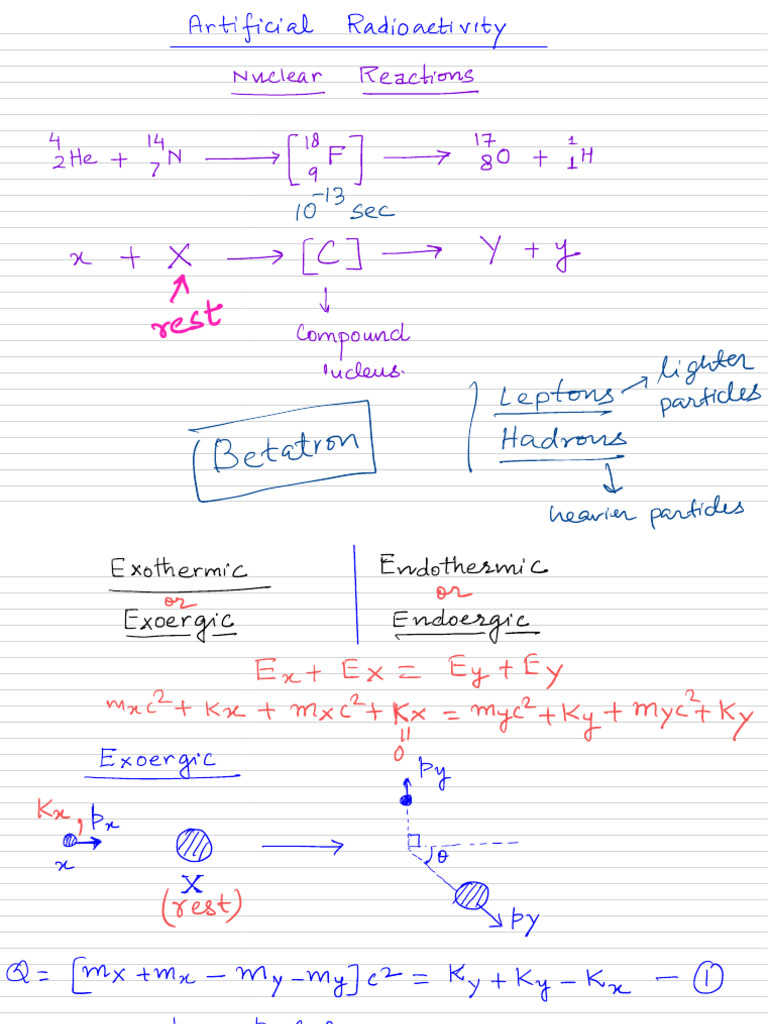 Artificial Radioactivity
Nuclear Reactions
⁴₂He + ¹⁴₇N ⟶ [¹⁸₉F] ⟶ ¹⁷₈O + ¹₁H
10⁻¹³ sec
x + X ⟶ [C] ⟶ Y + y
rest
↓
Compound
nucleus.
Leptons → lighter
particles
Hadrons
Betatron
heavier particles
Exothermic | Endothermic
or or
Exoergic Endoergic
Eₓ + E_X = E_y + E_Y
mₓc² + Kₓ + m_Xc² + K_X = m_yc² + K_y + m_Yc² + K_Y
॥
0
Exoergic
p_y
Kₓ, pₓ
θ
x
X
(rest)
p_Y
Q = [m_X + mₓ − m_y − m_Y]c² = K_y + K_Y − Kₓ — ①